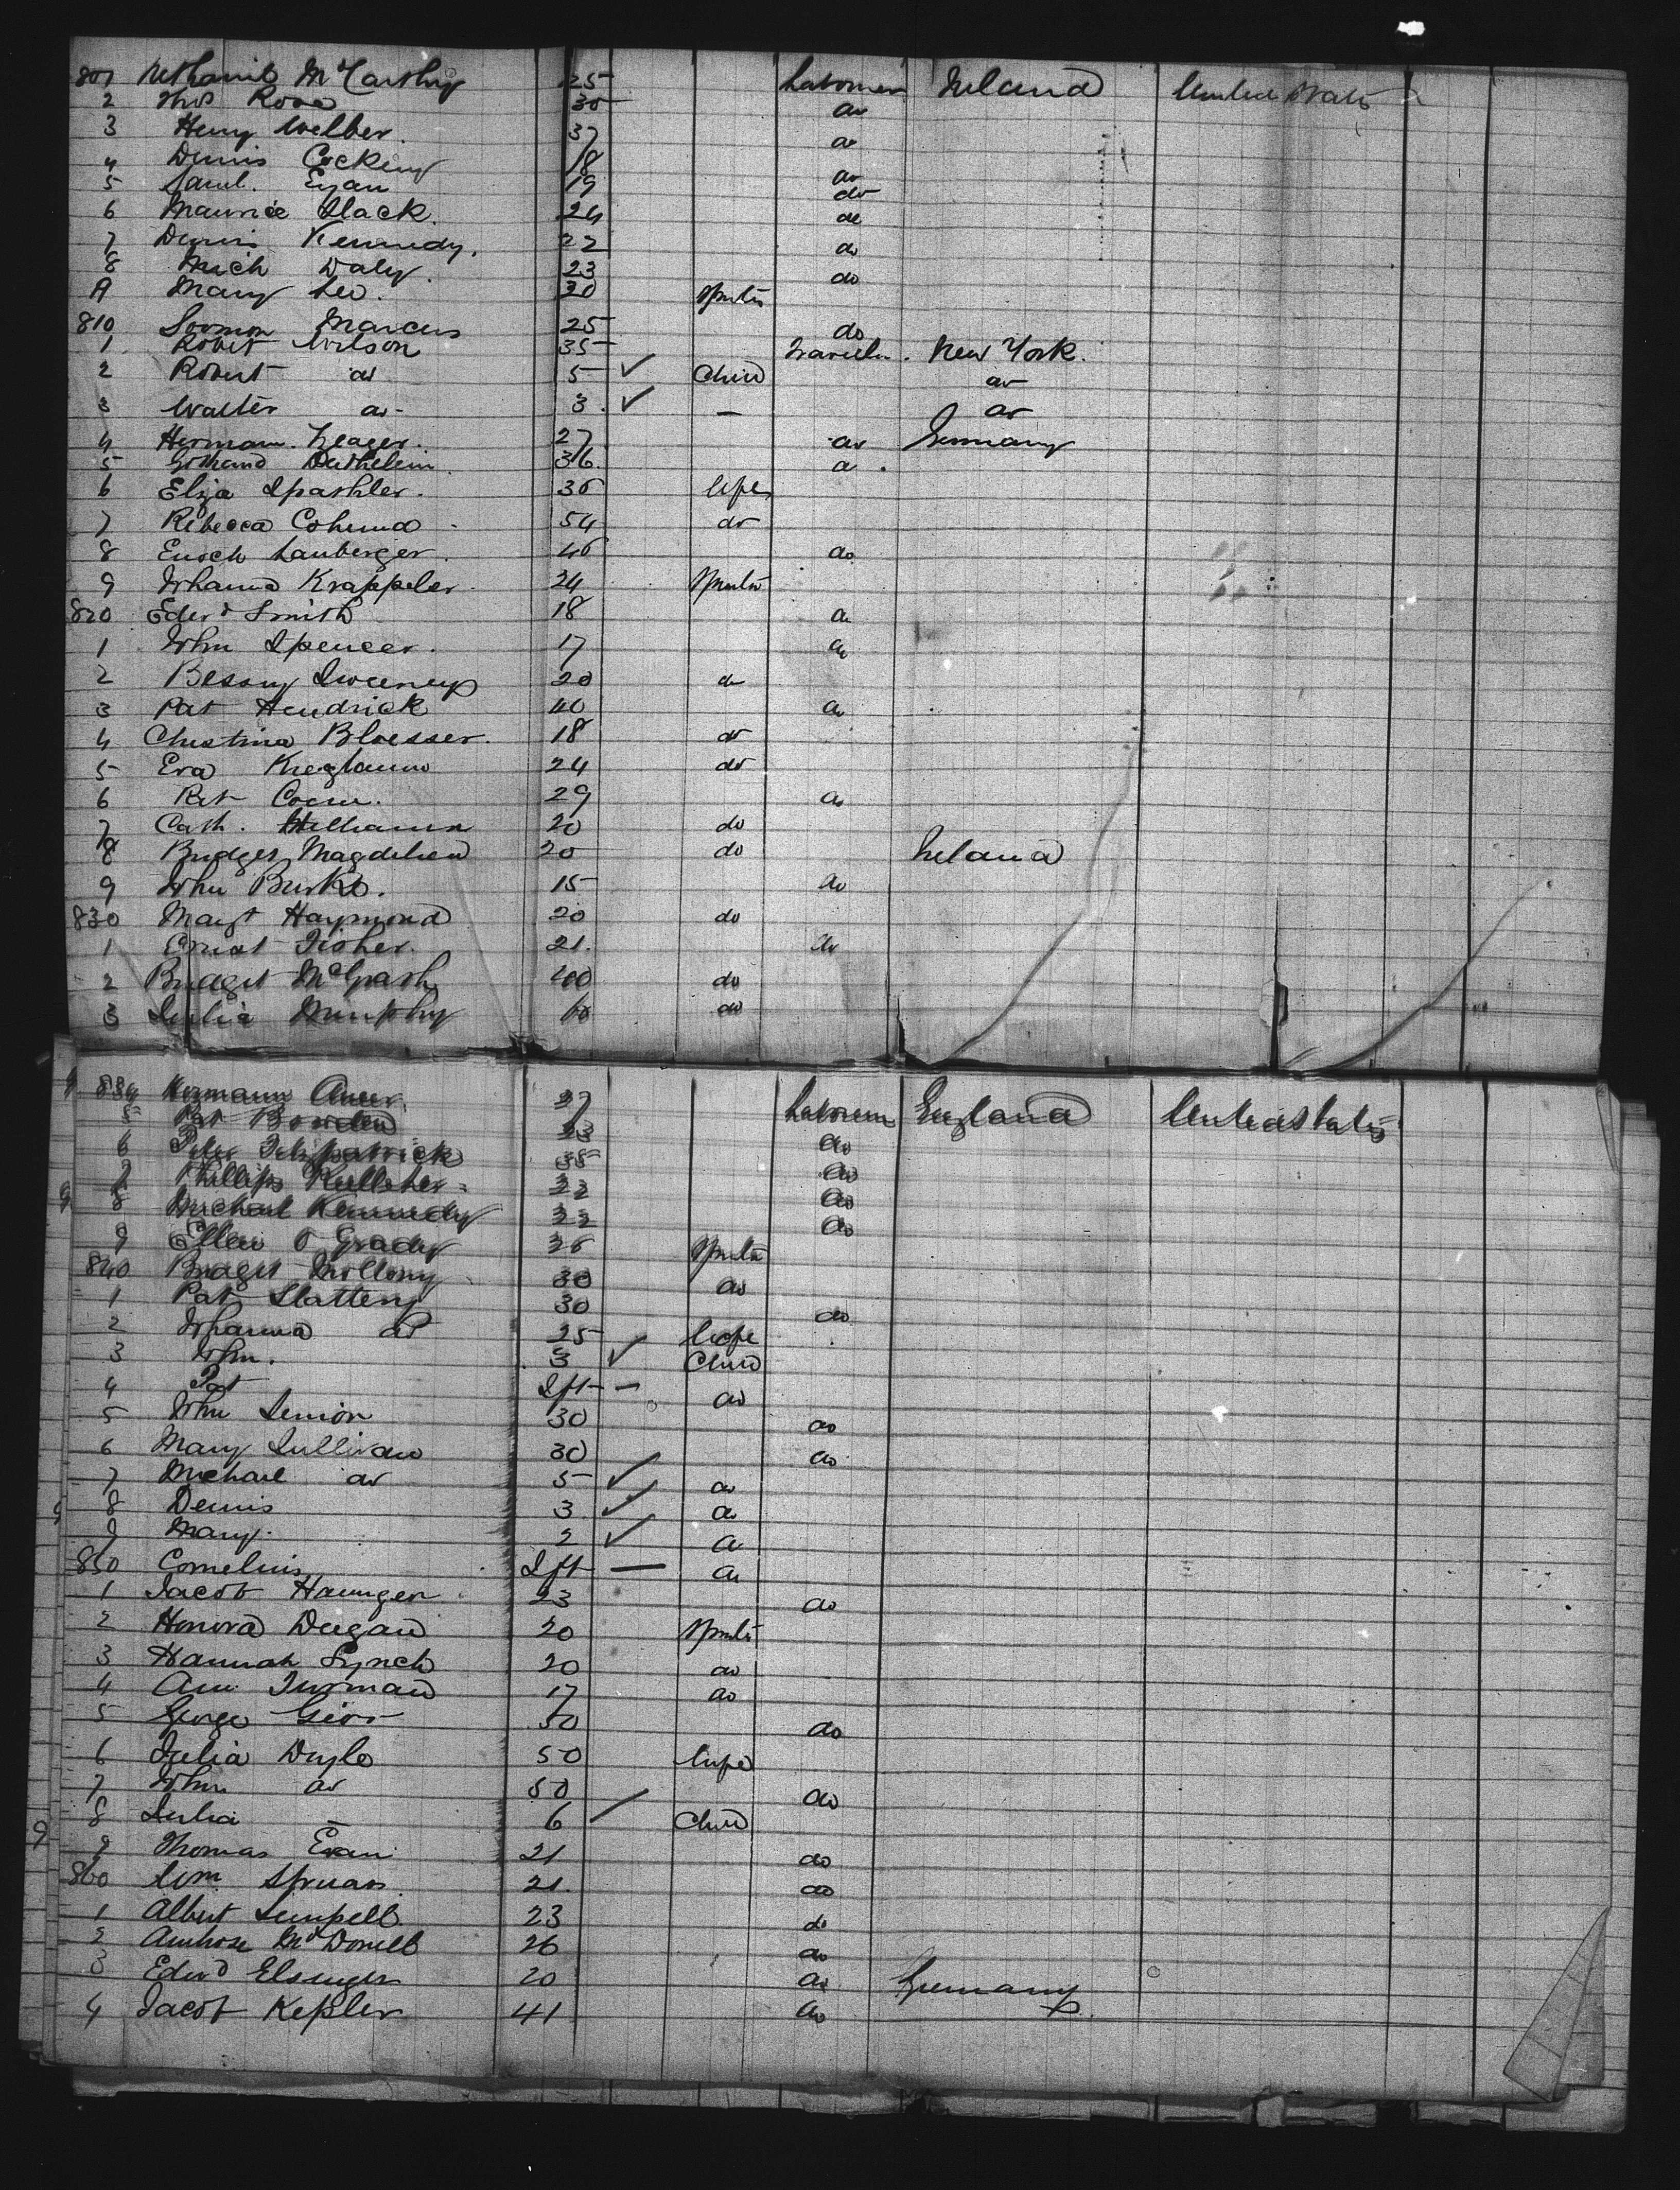 801 Nethanil McCarthy 25 Laborer Ireland United States
2 Thos Rose 30 do
3 Henry Welber 37 do
4 Dennis Cocking 18 do
5 Saml. Egan 19 do
6 Maurice Slack 24 do
7 Dennis Kennedy 22 do
8 Mich Daly 23 do
9 Mary Leo 20 Spinster
810 Soomon Marcus 25 do
1 Robert Wilson 35 New York
2 Robert do 5 Child do
3 Walter do 3 — do
4 Herman Zeager 27 do Germany
5 36
6 Eliza Spashler 36 Wife
7 Rebecca 54 do
8 Enoch Lauberger 46 do
9 Johanna Krappeler 24 Spinster
820 Edwd Smith 18 do
1 John Spencer 17 do
2 Bessy Sweeney 20 do
3 Pat Hendrick 40 do
4 Christina Bloesser 18 do
5 Eva 24 do
6 Pat 29 do
7 Cath. Williams 20 do
8 Bridget 20 do Ireland
9 John Burke 15 do
830 Margt Haymond 20 do
1 Ernst Fisher 21 do
2 Bridget McGrath 40 do
3 Julia Murphy do
834 Hermann Auer 27 Laborer England United States
5 Pat 23 do
6 Peter Fitzpatrick 35 do
7 Phillip Kelleher 22 do
8 Michael Kennedy 22 do
9 Ellen O Grady 26 Spinster
840 Bridget 30 do
1 Pat Slattery 30 do
2 Johanna do 25 Wife
3 John 3 Child
4 Pat Ift — do
5 John 30 do
6 Mary Sullivan 30 do
7 Michael do 5 do
8 Dennis 3 do
9 Mary 2 do
850 Cornelius Ift — do
1 Jacob 23 do
2 Honora Deegan 20 Spinster
3 Hannah Lynch 20 do
4 Ann 17 do
5 George 30 do
6 Julia Doyle 50 Wife
7 John do 50 do
8 Julia — 6 Child
9 Thomas Evan 21 do
860 Wm 21 do
1 Albert 23 do
2 Ambrose McDonell 26 do
3 Edwd 20 do Germany
4 Jacob Keßler 41 do